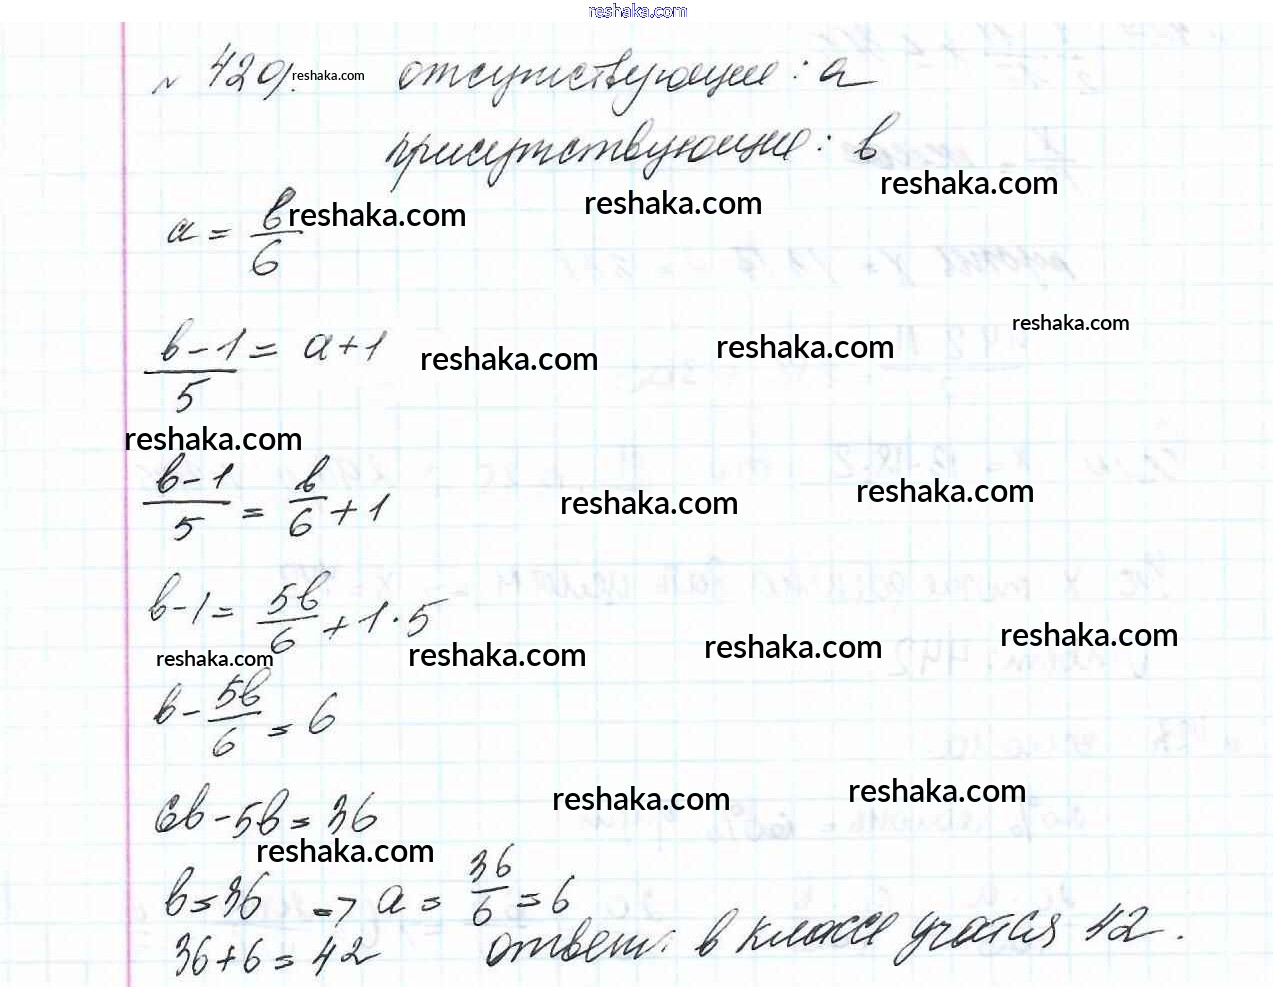 reshaka.com
№ 429. reshaka.com отсутствующие : a
присутствующие : b
reshaka.com reshaka.com reshaka.com
a = b/6
(b-1)/5 = a+1
reshaka.com reshaka.com reshaka.com
reshaka.com
(b-1)/5 = b/6 + 1
reshaka.com reshaka.com
b-1 = 5b/6 + 1·5
reshaka.com reshaka.com reshaka.com reshaka.com
b - 5b/6 = 6
6b - 5b = 36
reshaka.com reshaka.com
reshaka.com
b = 36 => a = 36/6 = 6
36+6 = 42 ответ: в классе учатся 42.